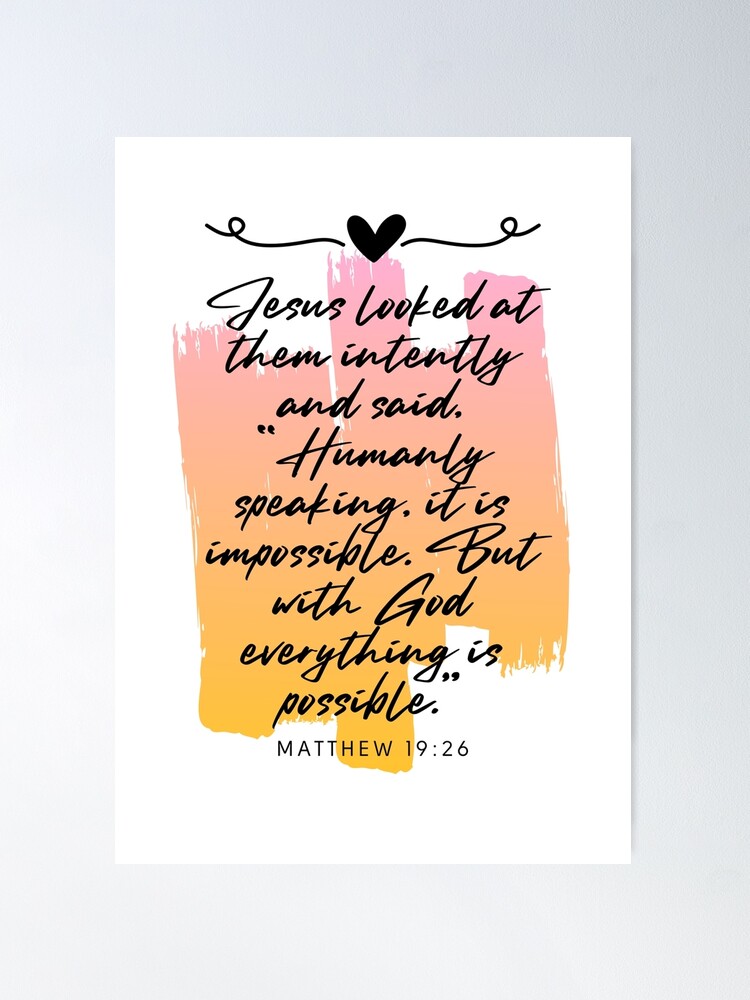 Jesus looked at
them intently
and said,
“Humanly
speaking, it is
impossible. But
with God
everything is
possible.”
MATTHEW 19:26